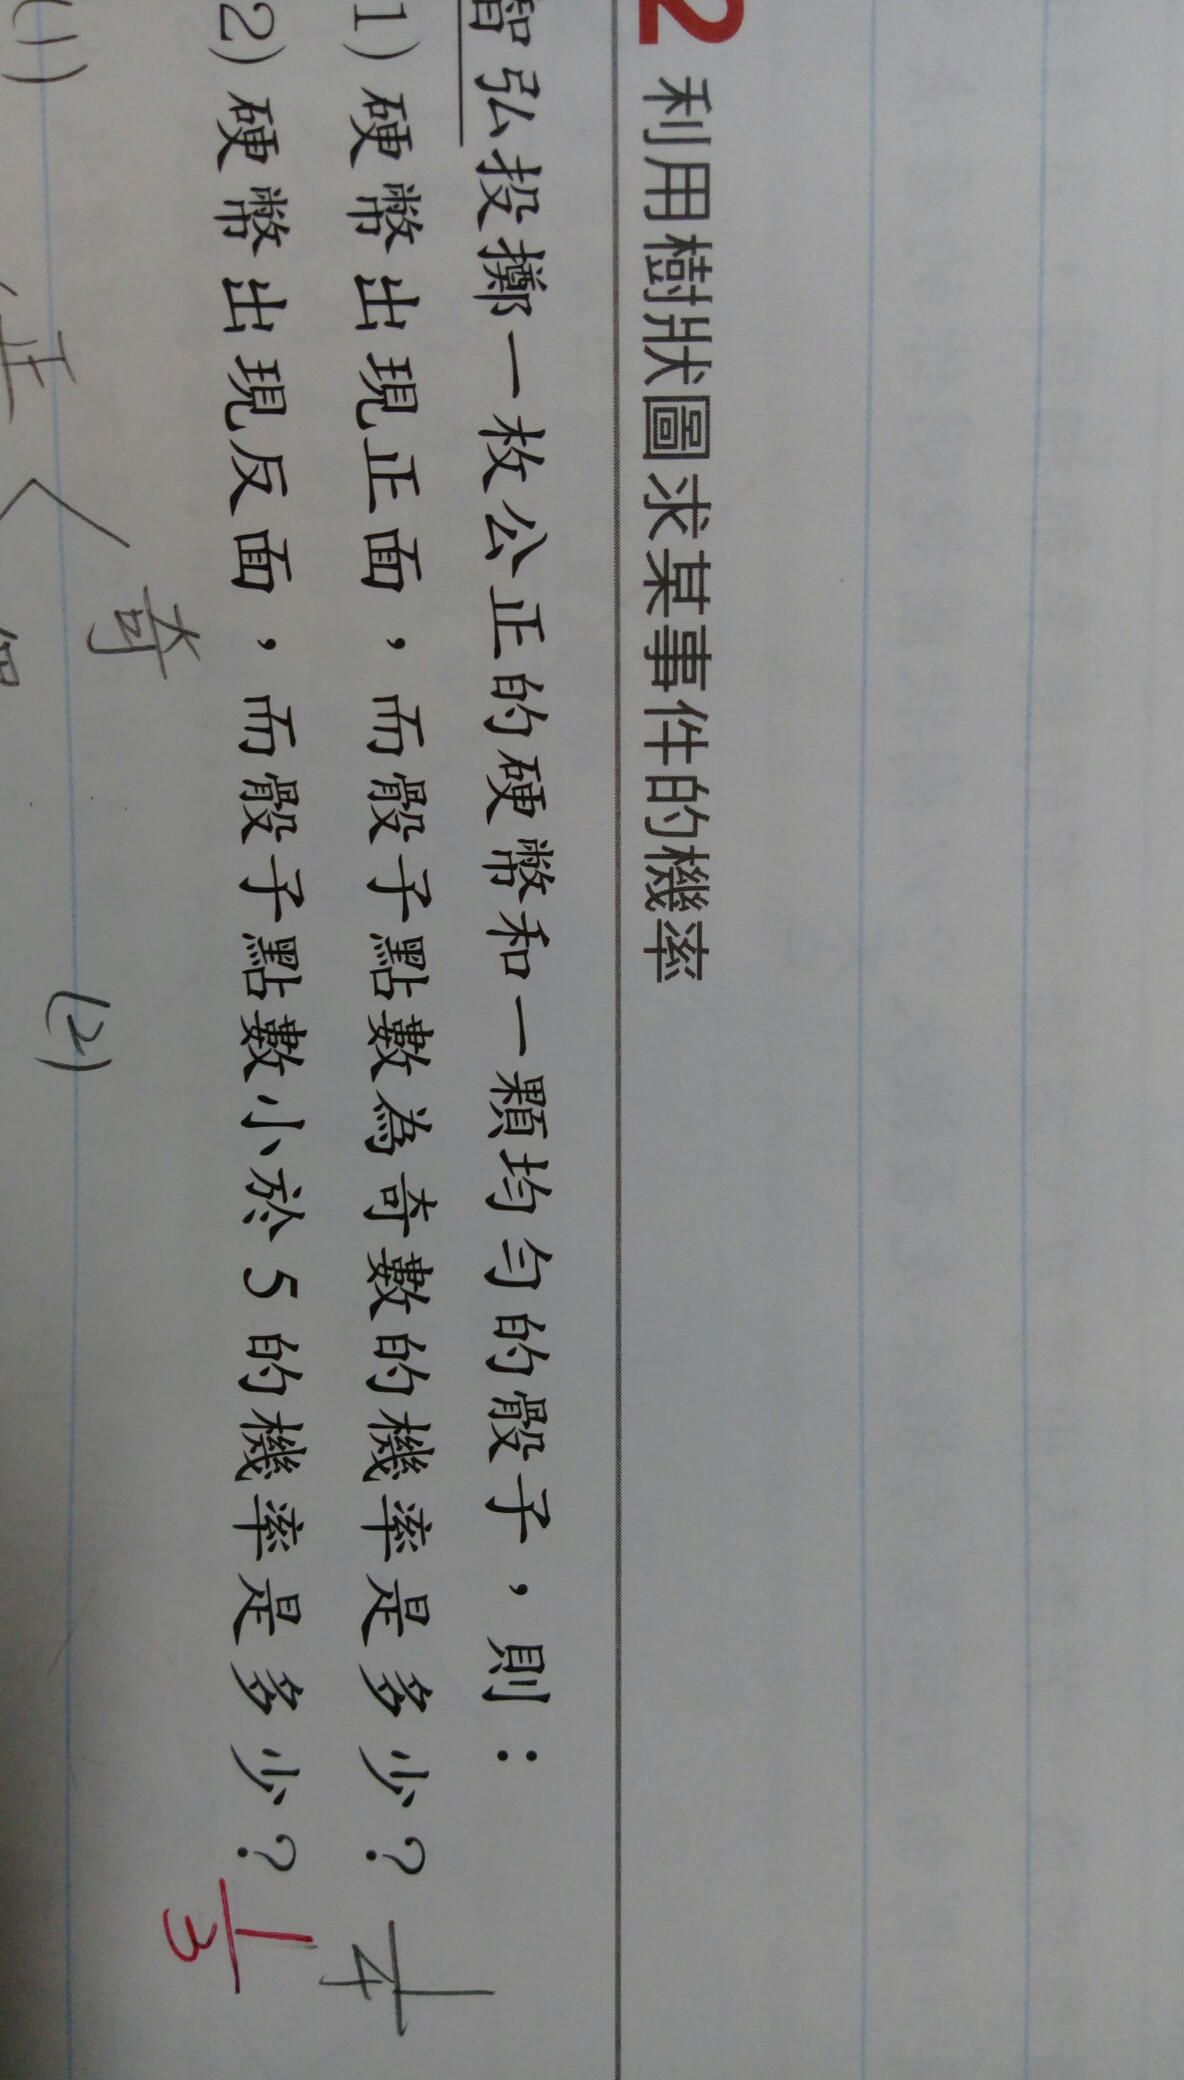 2 利用樹狀圖求某事件的機率
智弘投擲一枚公正的硬幣和一顆均勻的骰子，則：
1) 硬幣出現正面，而骰子點數為奇數的機率是多少？ 1/4
2) 硬幣出現反面，而骰子點數小於5的機率是多少？ 1/3
(1)
正
奇
(2)